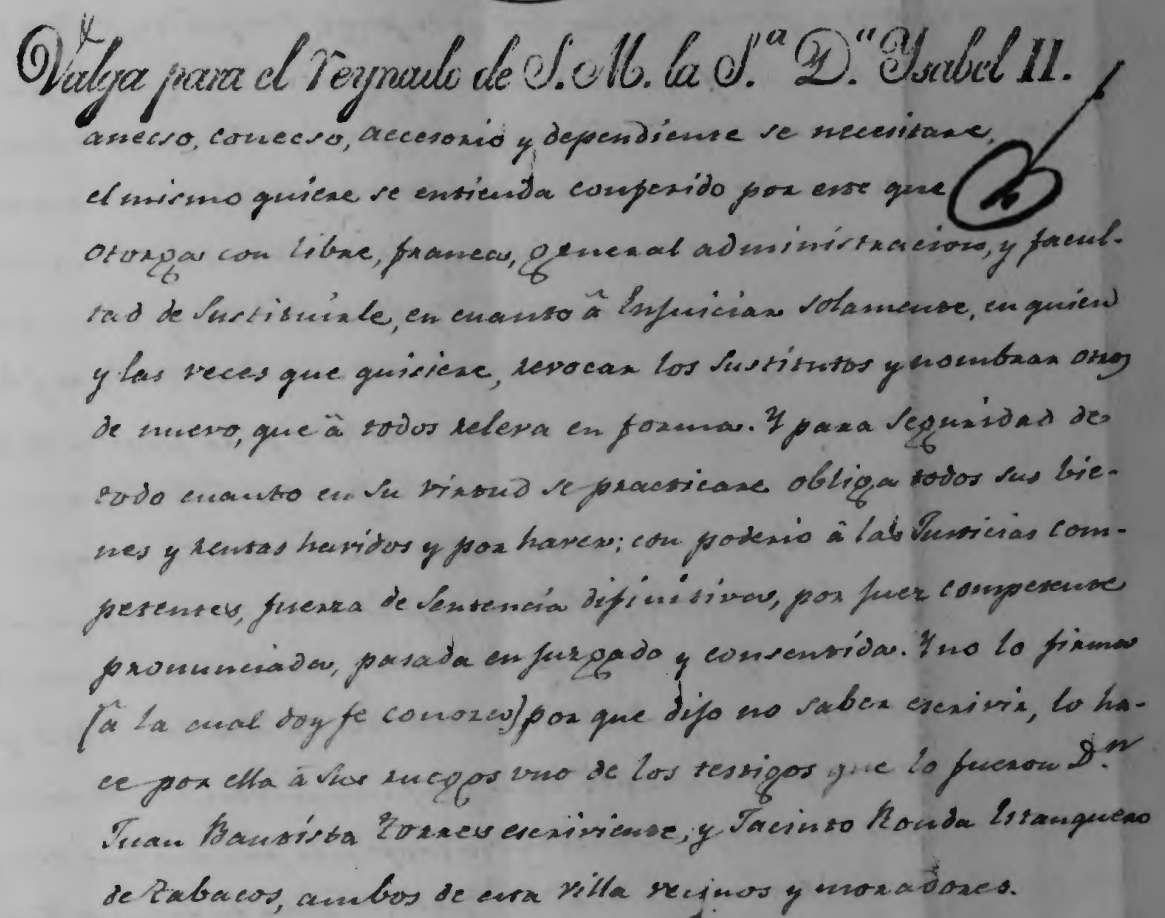 Valga para el Reynado de S. M. la S.ª D.ª Ysabel II.
anecso, conecso, accesorio y dependiente se necesitare,
el mismo quiere se entienda conferido por este que
otorga con libre, franca, general administracion, y facul-
tad de Sustituirle, en cuanto â Enjuiciar solamente, en quien
y las veces que quisiere, revocar los Sustitutos y nombrar otros
de nuevo, que â todos releva en forma. Y para seguridad de
todo cuanto en su virtud se practicare obliga todos sus bie-
nes y rentas havidos y por haver; con poderio â las Justicias com-
petentes, fuerza de Sentencia difinitiva, por Juez competente
pronunciada, pasada en juzgado y consentida. Y no lo firma
(â la cual doy fe conozco) por que dijo no saber escrivir, lo ha-
ce por ella â sus ruegos uno de los testigos que lo fueron D.n
Juan Bautista Torres escriviente, y Jacinto Ronda Estanquero
de tabacos, ambos de esta villa vecinos y moradores.